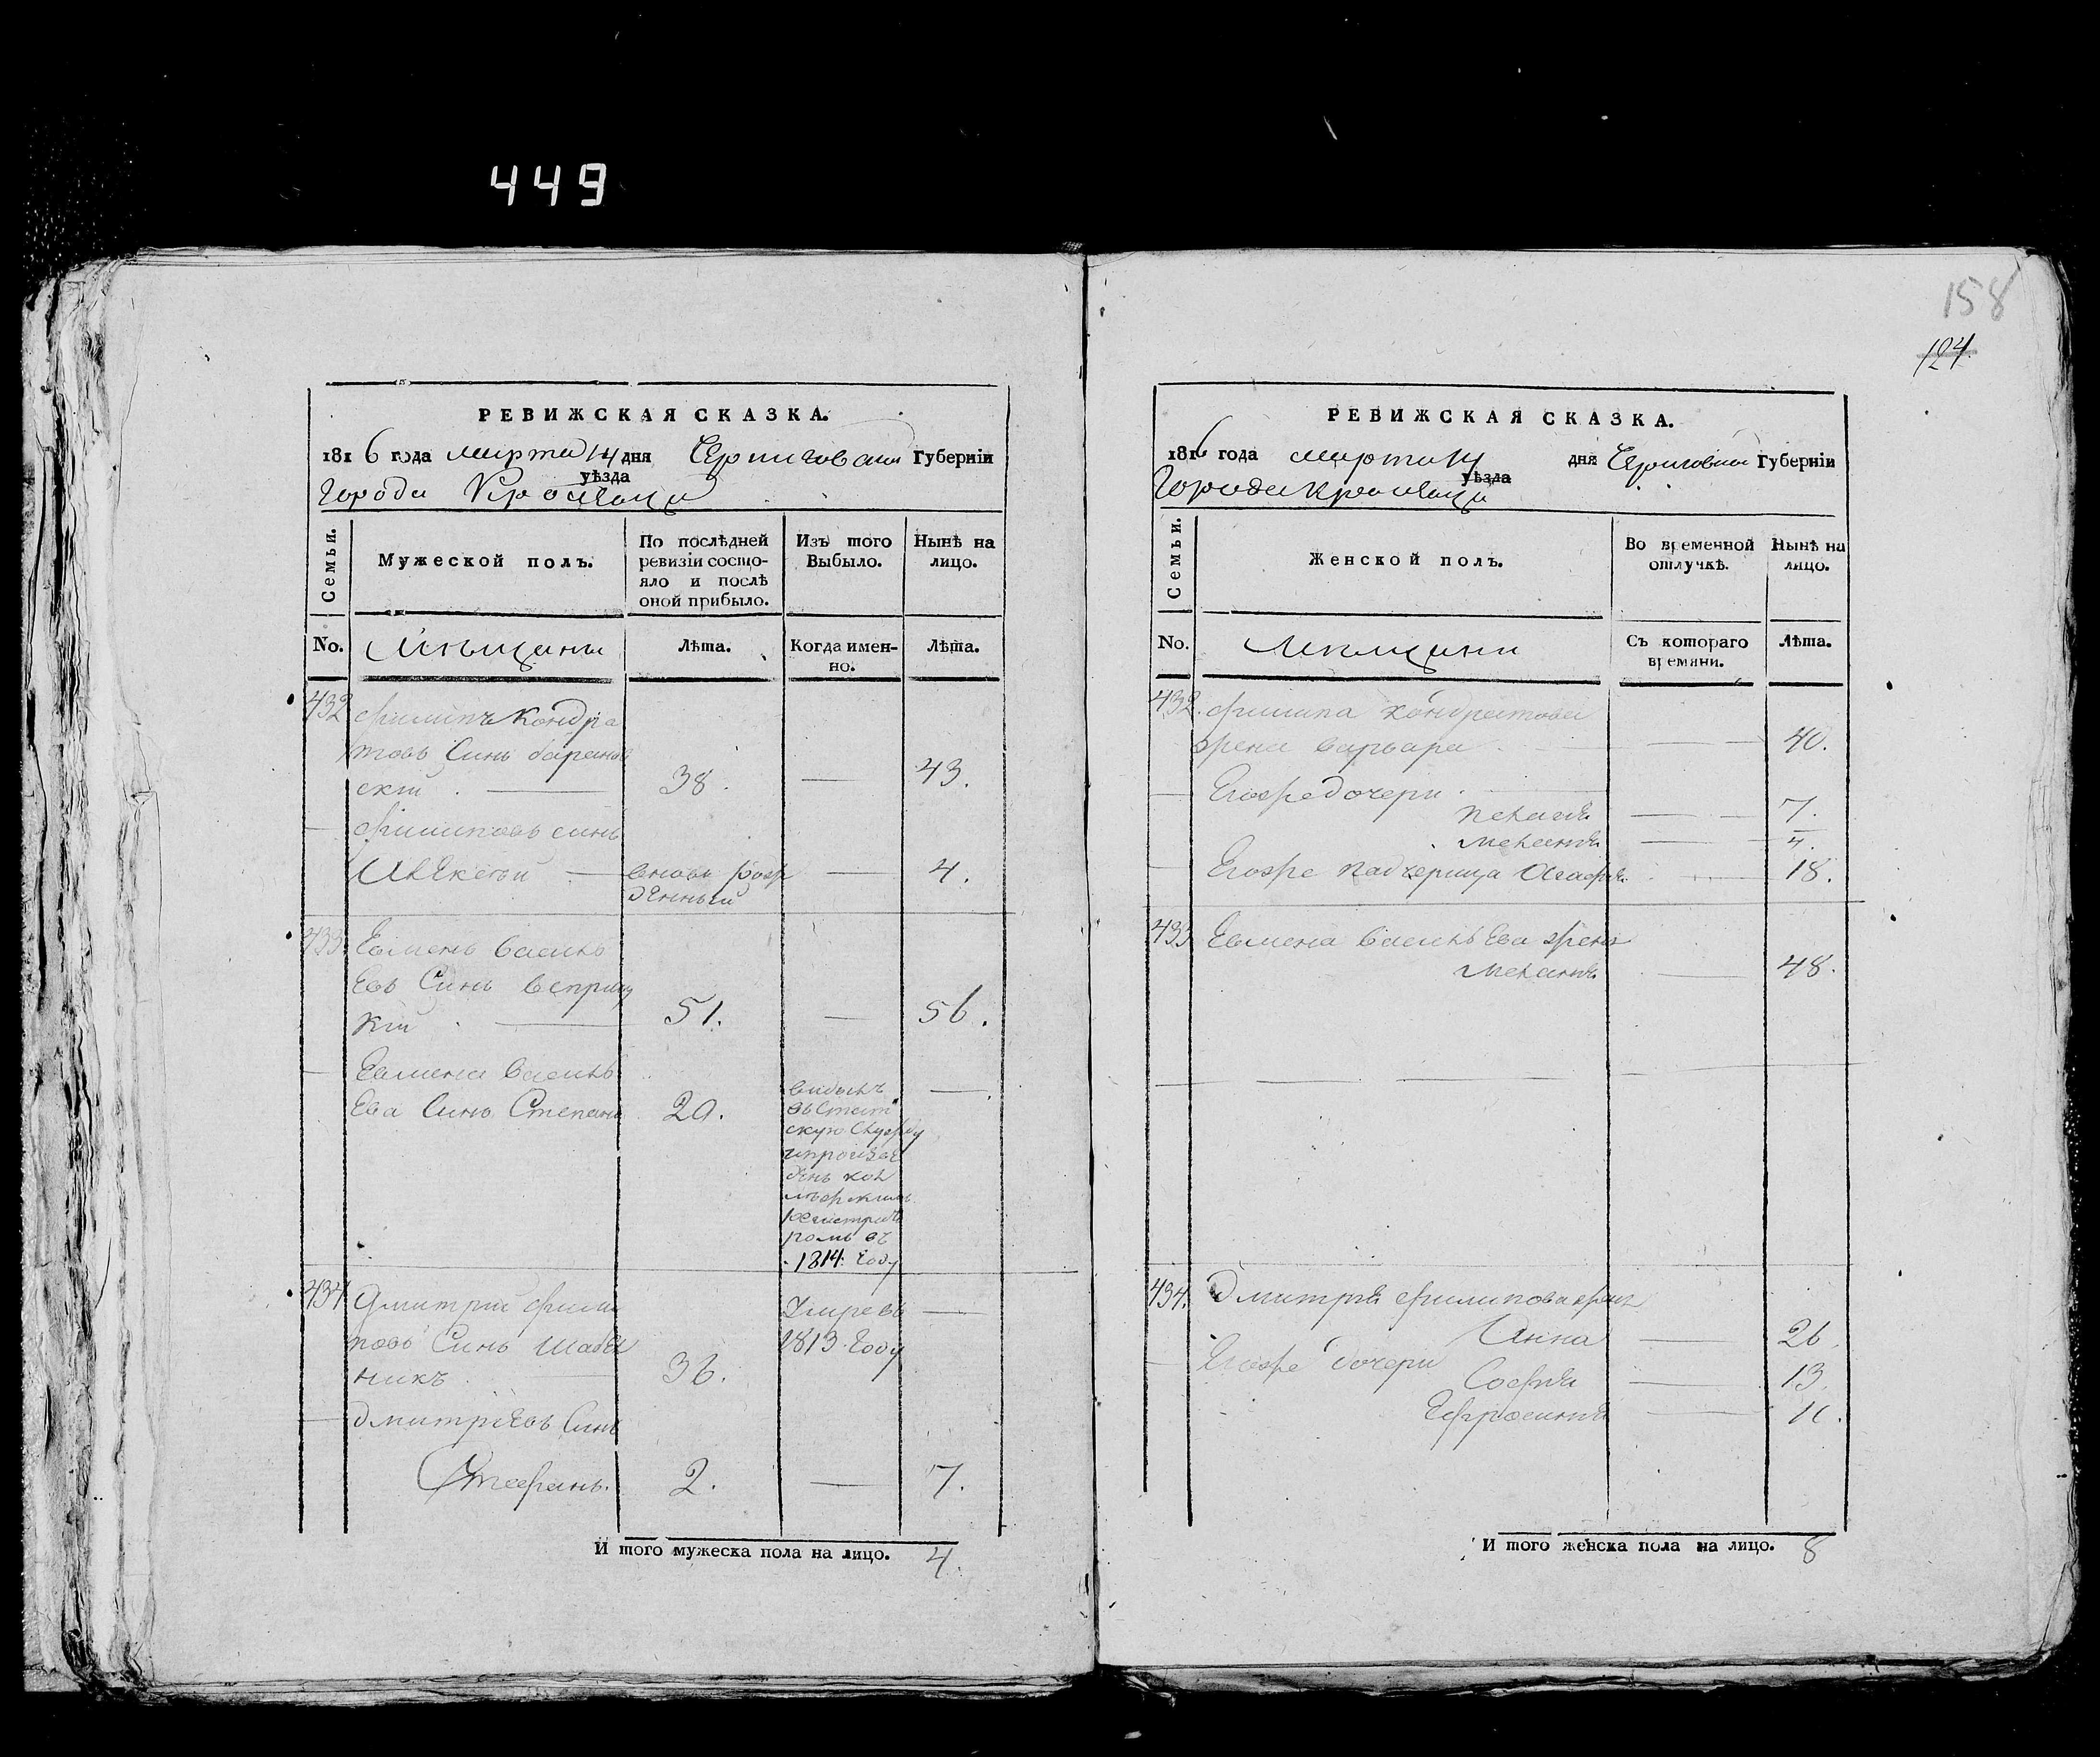 449
РЕВИЖСКАЯ СКАЗКА.
1816 года марта 14 дня Черниговской Губерніи
уѣзда
Города Кролевца
Семьи.
Мужеской полъ.
По послѣдней ревизіи состо-
яло и послѣ
оной прибыло.
Изъ того
Выбыло.
Нынѣ на
лицо.
No.
Мѣщане
Лѣта.
Когда имен-
но.
Лѣта.
432 Филипъ Кондра
товъ Синъ баранов
скій 38. — 43.
— Филиповъ синъ
Алексѣй — вновь рож
денный — 4.
433 Евменъ василь
евъ Синъ веприц
кій 51. — 56.
— Евмена василь
ева Синъ Степанъ 20. —
выбылъ
въ Стат
скую Службу
и произве
денъ кол
лежскимъ
регистрато
ромъ въ
1814: году
434 Дмитрій фили
повъ Синъ Шабел
никъ 36. Умре въ —
1813. году
— Дмитріевъ Синъ
Стефанъ. 2. — 7.
И того мужеска пола на лицо. 4.
158
124.
РЕВИЖСКАЯ СКАЗКА.
1816 года марта 14 дня Черниговской Губерніи
уѣзда
Города Кролевца
Семьи.
Женской полъ.
Во временной
отлучкѣ.
Нынѣ на
лицо.
No.
Мѣщане
Съ котораго
времяни.
Лѣта.
432. Филипа Кондратова
жена варвара — 40.
— Егоже дочери
Пелагія — 7.
Меланія — 4.
— Егоже падчерица Агафія — 18.
433 Евмена василь Ева жена
Меланія — 48.
434. Дмитрія филипова жена
Анна — 26.
— Егоже дочери
Софія — 13.
Ефросинія — 11.
И того женска пола на лицо. 8